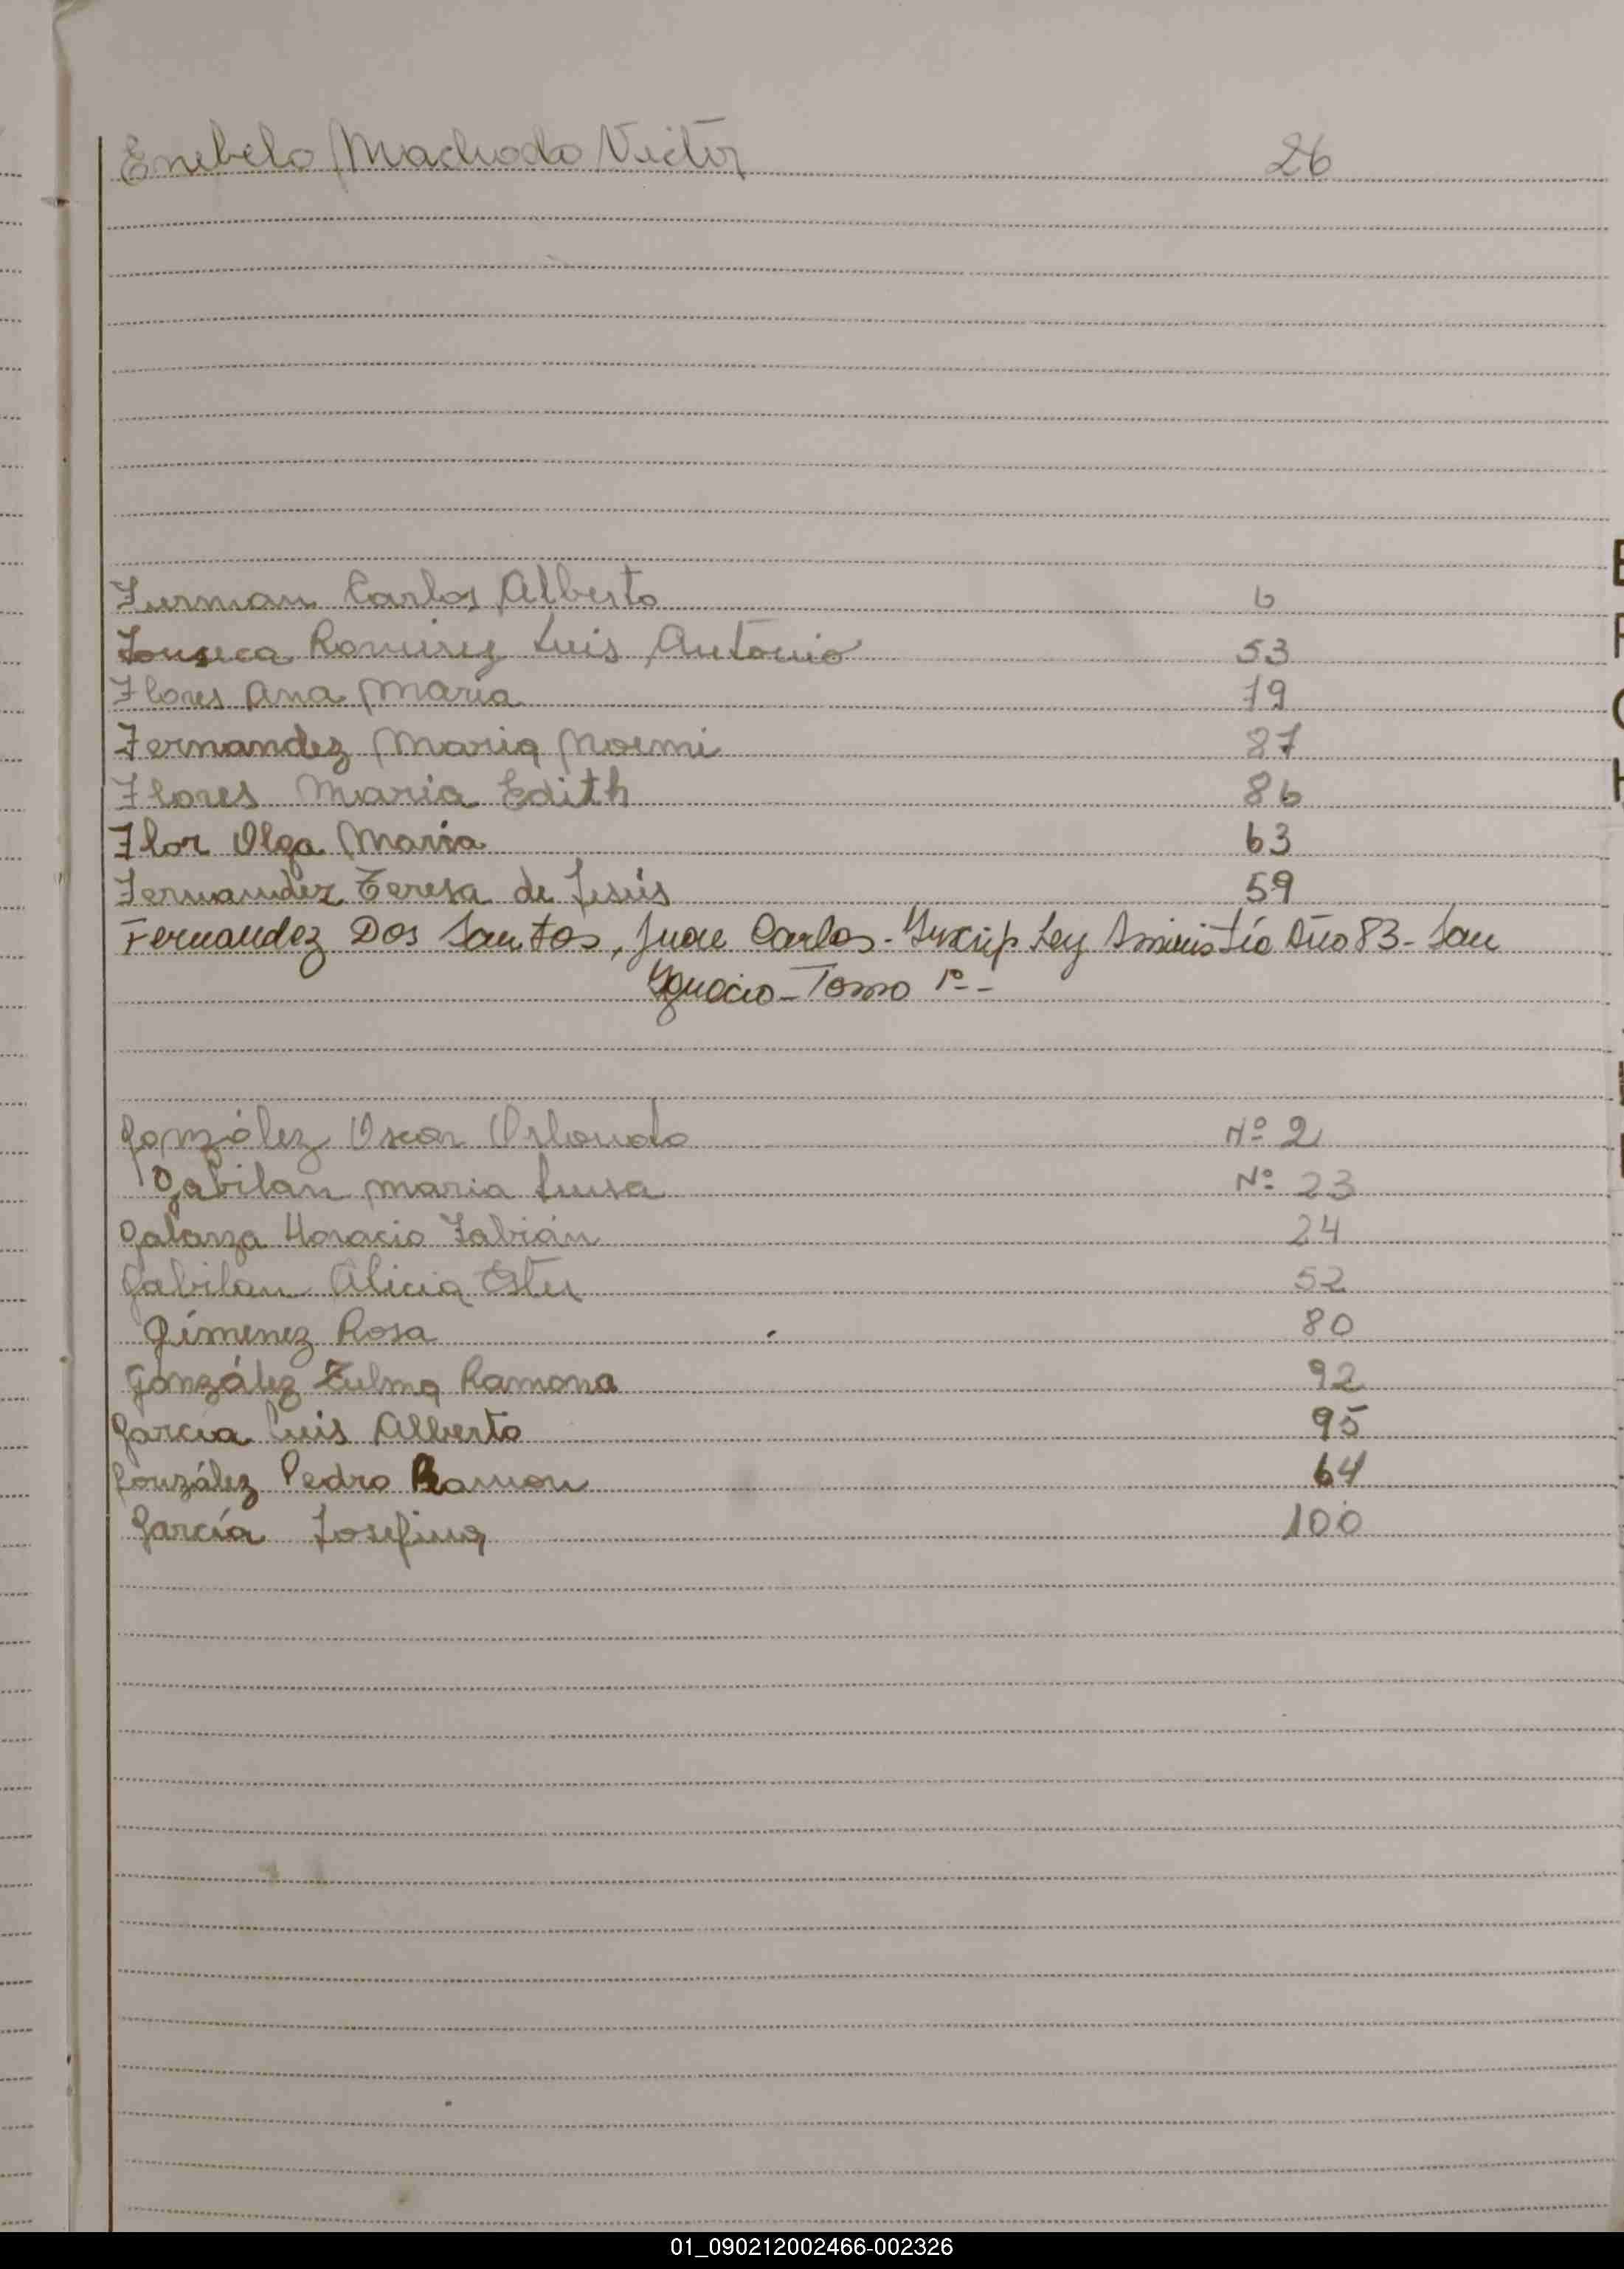 Enebelo Machado Victor 26
Furman Carlos Alberto 6
Fonseca Ramirez Luis Antonio 53
Flores Ana Maria 19
Fernandez Maria Noemi 87
Flores Maria Edith 86
Flor Olga Maria 63
Fernandez Teresa de Jesús 59
Fernandez Dos Santos, Juan Carlos - Inscrip Ley Aministía Año 83 - San
Ygnacio - Tomo 1º -
González Oscar Orlando Nº 2
Gabilan maria Luisa Nº 23
Galarza Horacio Fabián 24
Gabilan Alicia Ester 52
Gimenez Rosa 80
González Zulma Ramona 92
Garcia Luis Alberto 95
González Pedro Ramon 64
García Josefina 100
01_090212002466-002326